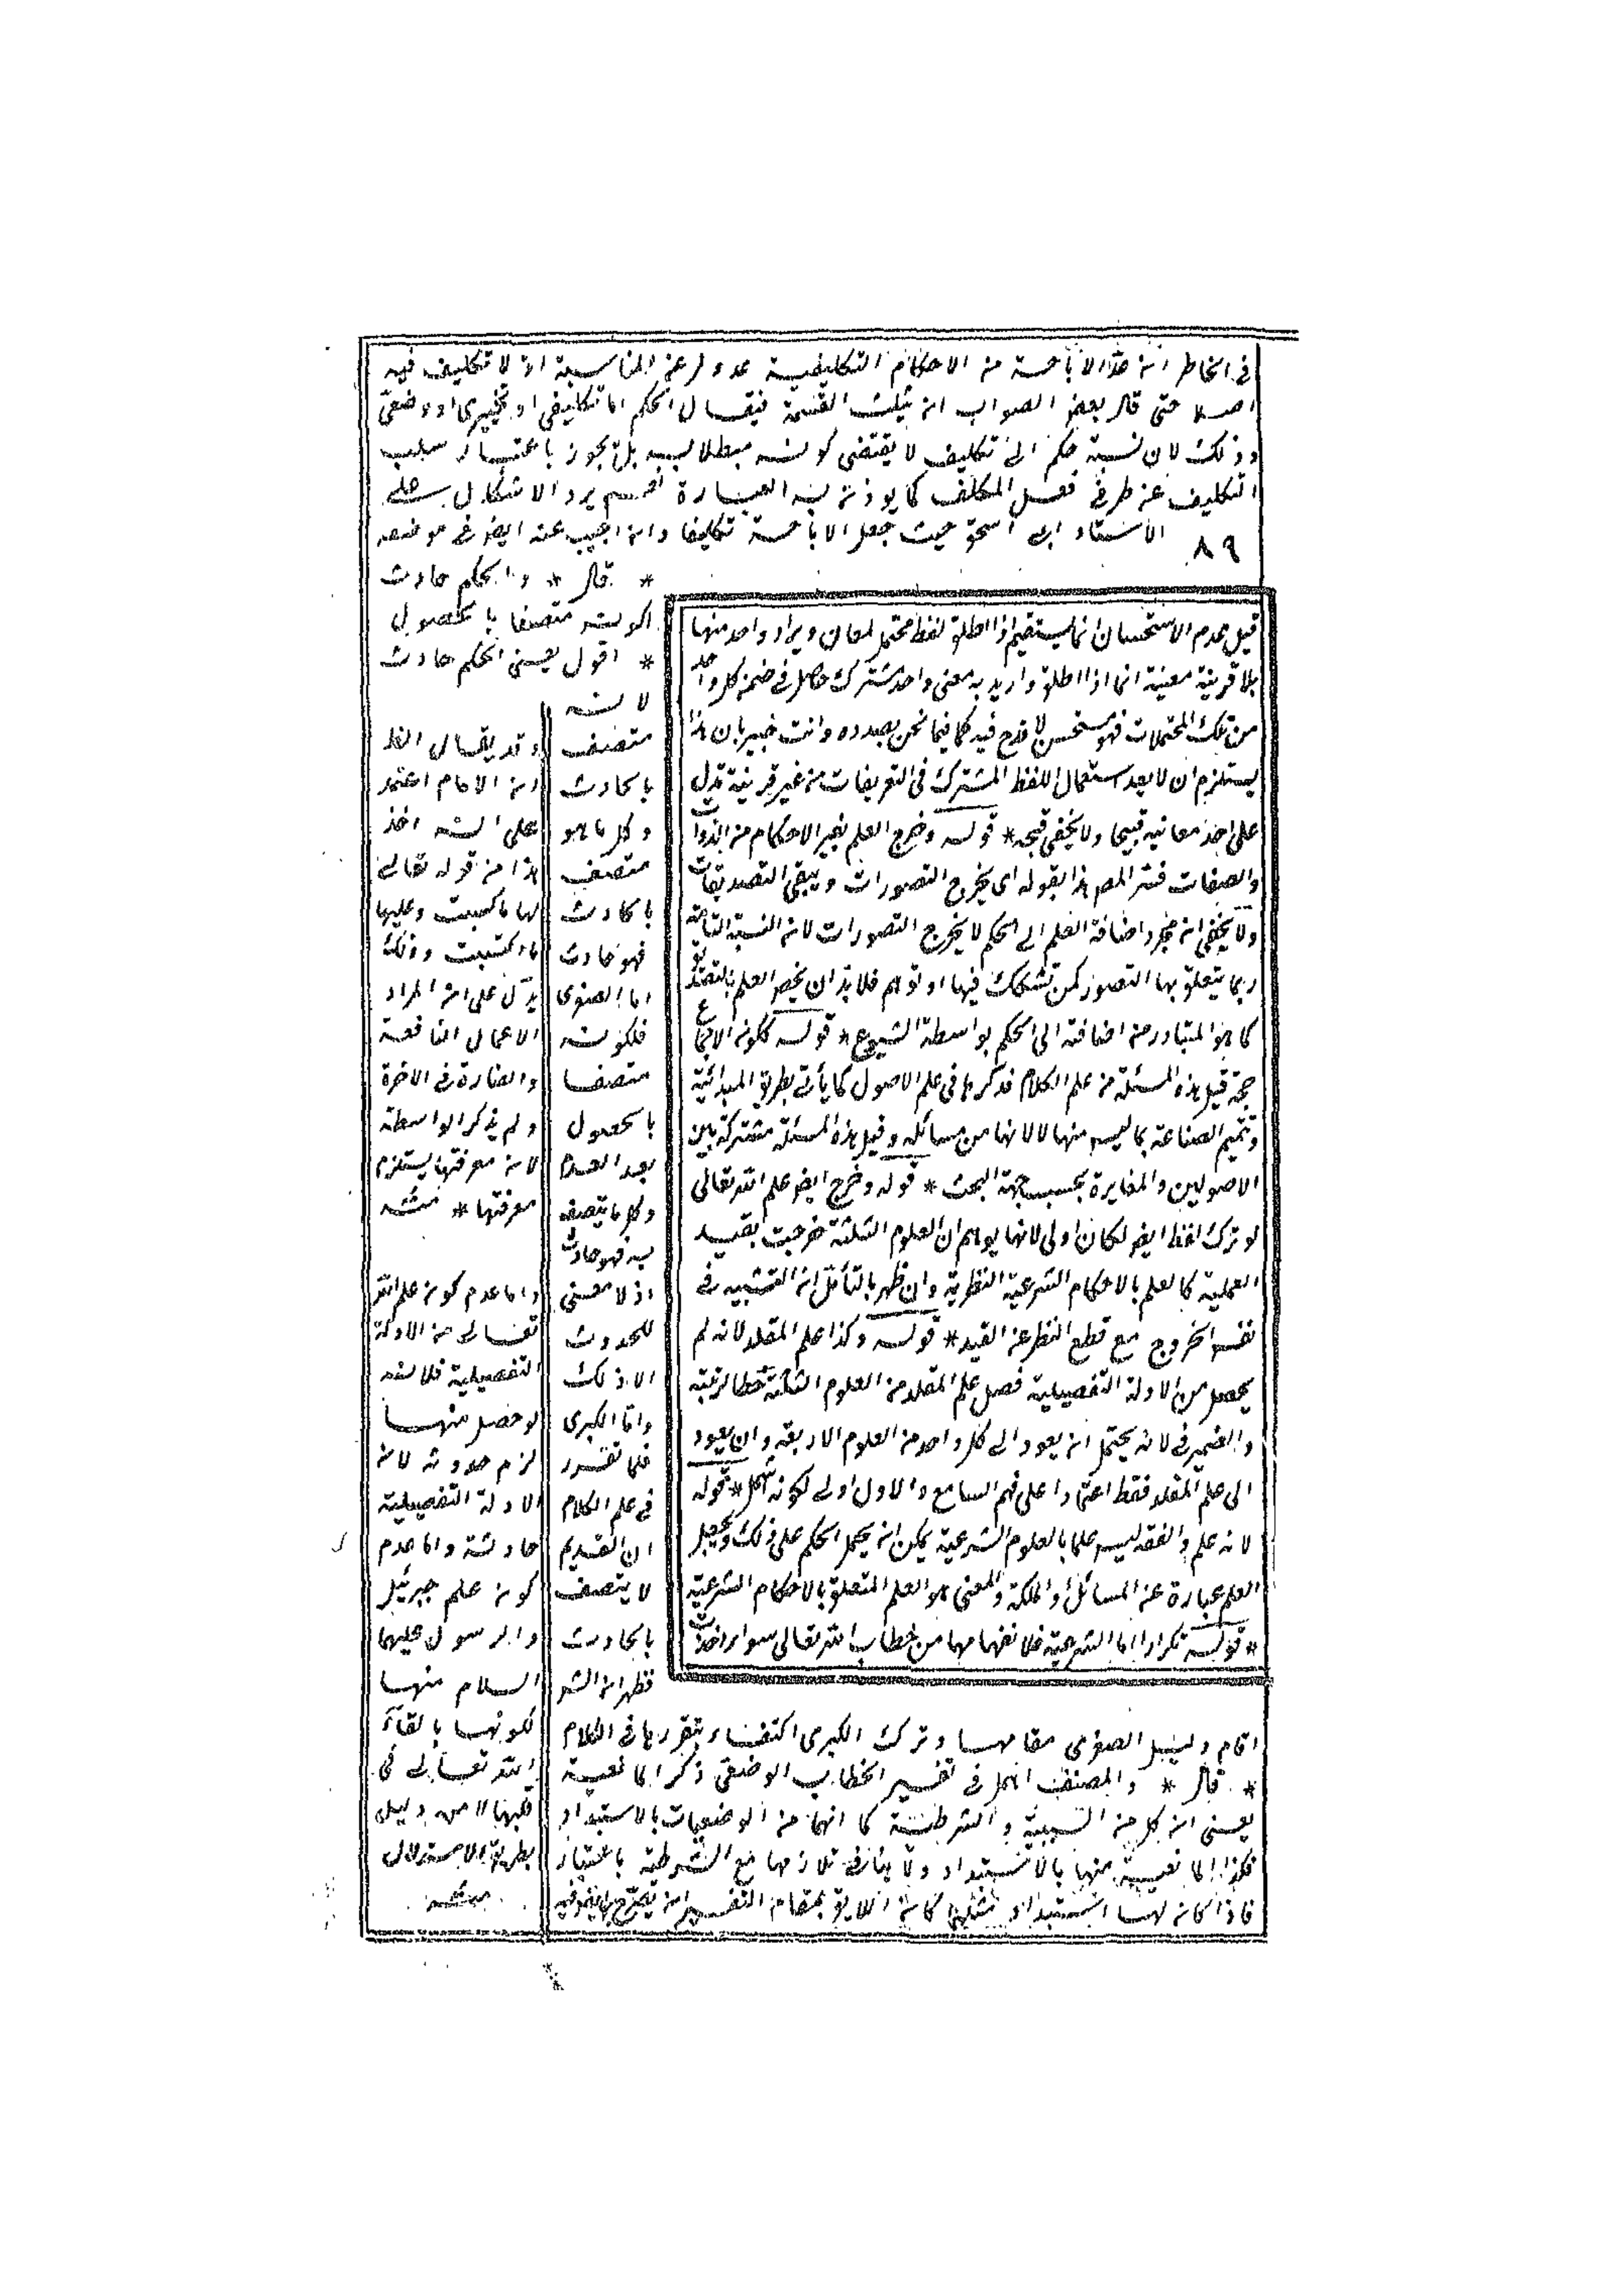 في الخاطر ان عدّ الاباحة من الاحكام التكليفية عدول عن المناسبة اذ لا تكليف فيه
اصلا حتى قال بعض الصواب ان يثلث القسمة فيقال الحكم اما تكليفي او تخييري او وضعيّ
وذلك لان نسبة حكم الى تكليف لا يقتضي كونه مبطلا لسببه بل يجوز باعتبار سلب
التكليف عن طرفي فعل المكلف كما يوذن به العبارة نعم يرد الاشكال على
الاستاد ابي اسحق حيث جعل الاباحة تكليفا وان اجيب عنه ايضا في موضعه
٨٩
* قال * والحكم حادث
لكونه متصفا بالحصول
* اقول يعني الحكم حادث
لانه
متصف
بالحادث
وكل ما هو
متصف
بالحادث
فهو حادث
اما الصغرى
فلكونه
متصفا
بالحصول
بعد العدم
وكل ما يتصف
به فهو حادث
اذ لا معنى
للحدوث
الا ذلك
واما الكبرى
فلما تقرر
في علم الكلام
ان القديم
لا يتصف
بالحادث
فظهر ان الشر
اقام دليل الصغرى مقامها وترك الكبرى اكتفاء بتقررها في الكلام
* قال * والمصنف اهمل في تفسير الخطاب الوضعي ذكر المانعية
يعني ان كل من السببية والشرطية كما انهما من الوضعيات بالاستبداد
فكذا المانعية منها بالاستبداد ولا ينافي تلازمها مع الشرطية باعتبار
فاذا كان لها استبداد مثلهما كان اللايق بمقام التفسير ان يصرح بها
قيل عدم الاستحسان انما يستقيم اذا اطلق لفظ محتمل لمعان ويراد واحد منها
بلا قرينة معينة اما اذا اطلق واريد به معنى واحد مشترك حاصل في ضمن كل واحد
من تلك المحتملات فهو مستحسن لا قدح فيه كما فيما نحن بصدده وانت خبير بان هذا
يستلزم ان لا يعد استعمال اللفظ المشترك في التعريفات من غير قرينة تدل
على احد معانيه قبيحا ولا يخفى قبحه * قوله وخرج العلم بغير الاحكام من الذوات
والصفات فسّر المص هذا بقوله اي يخرج التصورات ويبقى التصديقات
ولا يخفى ان مجرد اضافة العلم الى الحكم لا يخرج التصورات لان النسبة التامة
ربما يتعلق بها التصور كمن تشكك فيها او توهم فلا بد ان يخص العلم بالتصديق
كما هو المتبادر من اضافته الى الحكم بواسطة الشيوع * قوله ككون الاجماع
حجة قيل هذه المسئلة من علم الكلام فذكرها في علم الاصول كما يأتي بطريق المبدائية
وتتميم الصناعة بما ليس منها لا لانها من مسائله وقيل هذه المسئلة مشتركة بين
الاصوليين والمغايرة بحسب جهة البحث * قوله وخرج ايضا علم الله تعالى
لو ترك لفظ ايضا لكان اولى لانها يوهم ان العلوم الثلثة خرجت بقيد
العملية كالعلم بالاحكام الشرعية النظرية وان ظهر بالتأمل ان التشبيه في
نفس الخروج مع قطع النظر عن القيد * قوله وكذا علم المقلد لانه لم
يحصل من الادلة التفصيلية فصل علم المقلد من العلوم الثلثة حطا لرتبته
والضمير في لانه يحتمل ان يعود الى كل واحد من العلوم الاربعة وان يعود
الى علم المقلد فقط اعتمادا على فهم السامع والاول اولى لكونه اشمل * قوله
لانه علم والفقه ليس علما بالعلوم الشرعية يمكن ان يحمل الحكم على ذلك ويجعل
العلم عبارة عن المسائل والملكة والمعنى هو العلم المتعلق بالاحكام الشرعية
* قوله تكرارا اما الشرعية فلانفهامها من خطاب الله تعالى سواء اخذت
وقد يقال
ان الامام اعتمد
على انه اخذ
هذا من قوله تعالى
لها ما كسبت وعليها
ما اكتسبت وذلك
يدل على ان المراد
الاعمال النافعة
والضارة في الاخرة
ولم يذكر الواسطة
لان معرفتها يستلزم
معرفتها * منه
واما عدم كون علم الله
تعالى من الادلة
التفصيلية فلانه
لو حصل منها
لزم حدوثه لان
الادلة التفصيلية
حادثة واما عدم
كون علم جبرئيل
والرسول عليهما
السلام منها
لكونها بالقاء
الله تعالى في
قلبهما لا من دليل
بطريق الاستدلال
منه